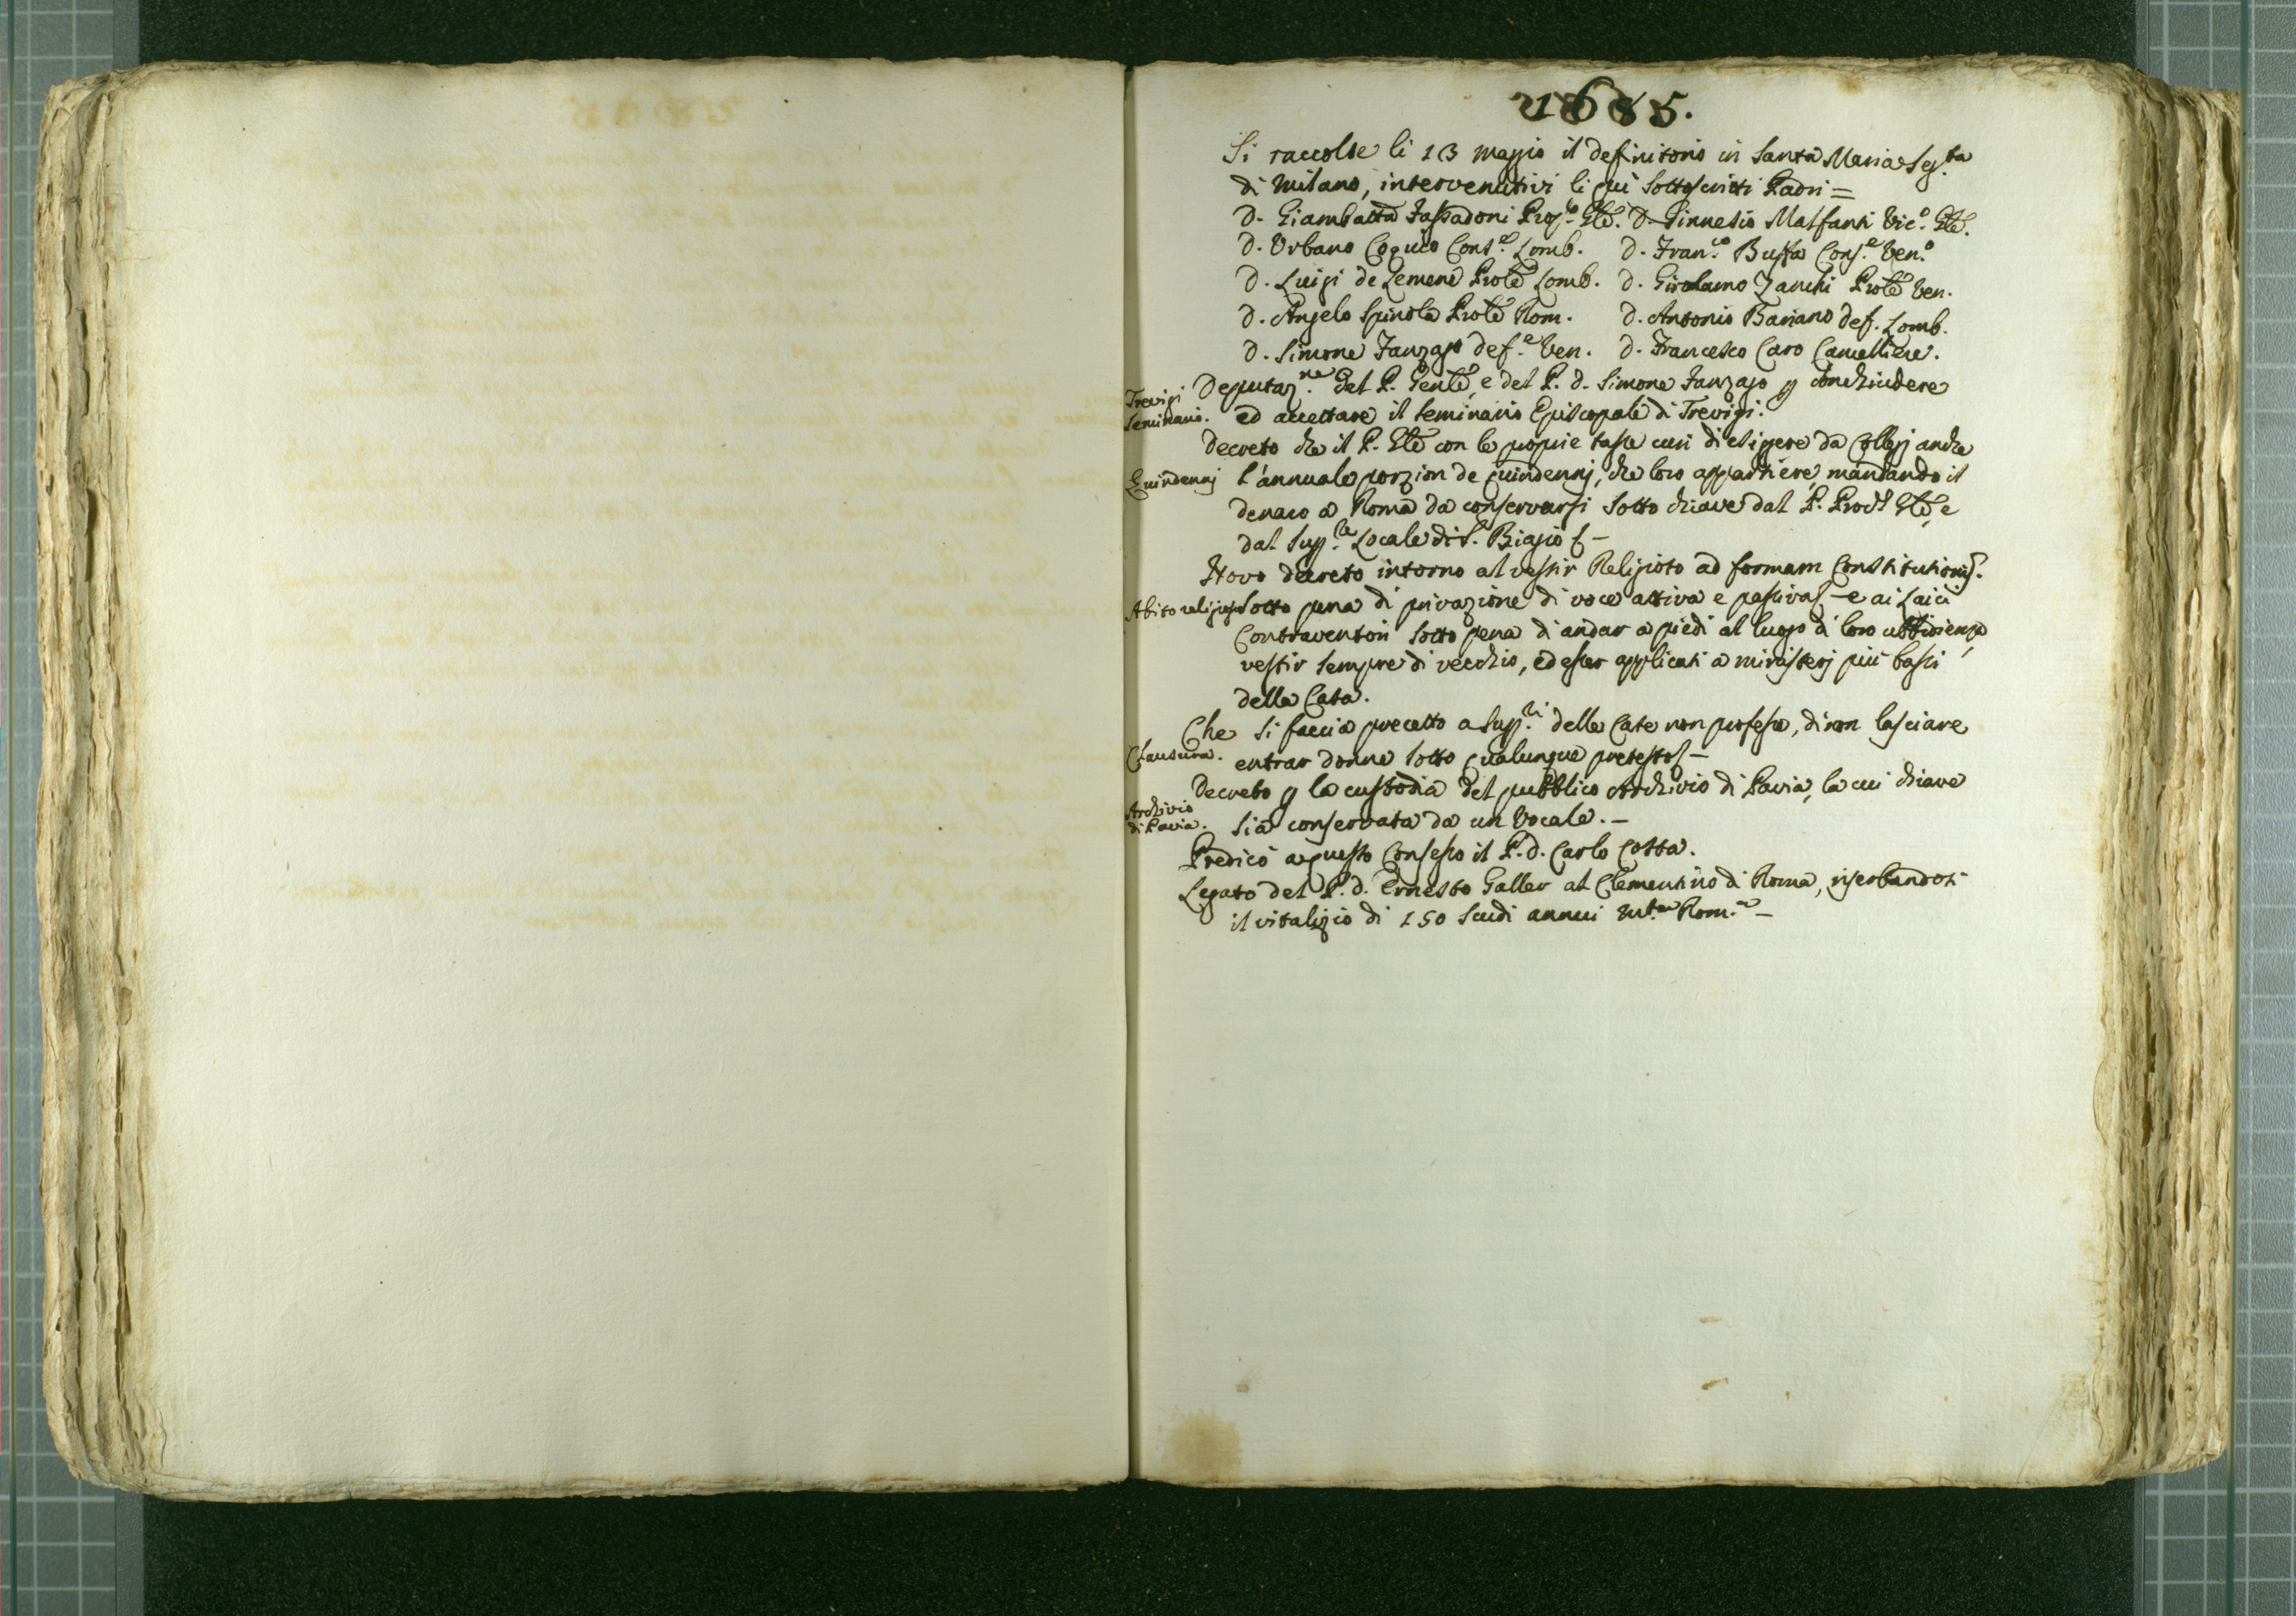 1685.
Si raccolse li 13 maggio il definitorio in Santa Maria Seg.ta
di Milano, intervenutivi li quì sottoscritti Padri =
D. Giambatta Fassadoni Prop.to Gle. D. Ginnesio Malfanti Vic.o Gle.
D. Urbano Cognio Cons.e Lomb. D. Fran.co Buffa Cons.e Ven.o
D. Luigi de Lemene Prole Lomb. D. Girolamo Zanchi Prole Ven.
D. Angelo Spinola Prole Rom. D. Antonio Bariano def. Lomb.
D. Simone Fanzago def.e Ven. D. Francesco Caro Cancelliere.
Trevigi
Seminario.
Deputaz.ne del P. Genle, e del P. d. Simone Fanzago p conchiudere
ed accettare il Seminario Episcopale di Trevigi.
Decreto che il P. Gle con le proprie tasse curi di esigere da Collegj anche
Quindennj l'annuale porzion de quindennj, che loro appartiene, mandando il
denaro a Roma da conservarsi sotto chiave dal P. Proc.r Gle, e
dal Sup.re Locale di S. Biagio
Novo decreto intorno al vestir Religioso ad formam Constitutionis.
Abito religioso sotto pena di privazione di voce attiva e passiva e ai Laici
Contraventori sotto pena di andar a piedi al luogo di loro ubbidienza,
vestir sempre di vecchio, ed esser applicati a ministerj più bassi
della Casa.
Che si faccia precetto a Sup.ri delle Case non professe, di non lasciare
Clausura. entrar donne sotto qualunque pretesto
Decreto p la custodia del pubblico Archivio di Pavia, la cui chiave
Archivio
di Pavia. sia conservata da un Vocale. –
Predicò a questo Consesso il P. d. Carlo Cotta.
Legato del P. d. Ernesto Galler al Clementino di Roma, riserbandosi
il vitalizio di 150 Scudi annui m.ta Rom.a –